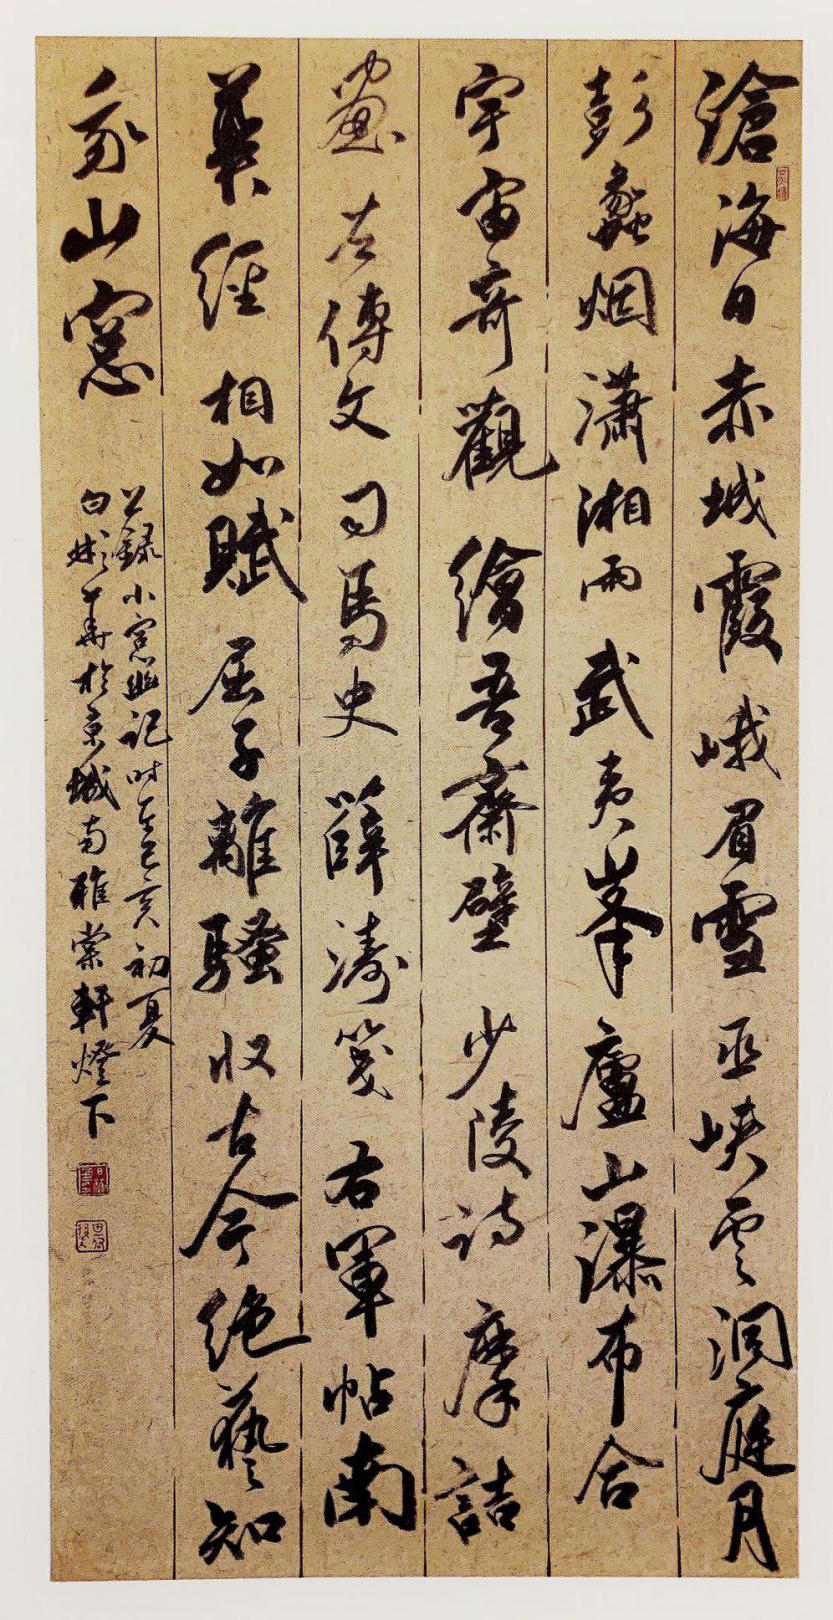 滄海日赤城霞峨眉雪巫峡云洞庭月
彭蠡烟瀟湘雨武夷峯廬山瀑布合
宇宙奇觀繪吾齋壁少陵詩摩詰
畫左傳文司馬史薛濤箋右軍帖南
華經相如賦屈子離騷收古今絶藝知
我山窓
錄小窓幽記時在己亥初夏
於京城南雅棠軒燈下